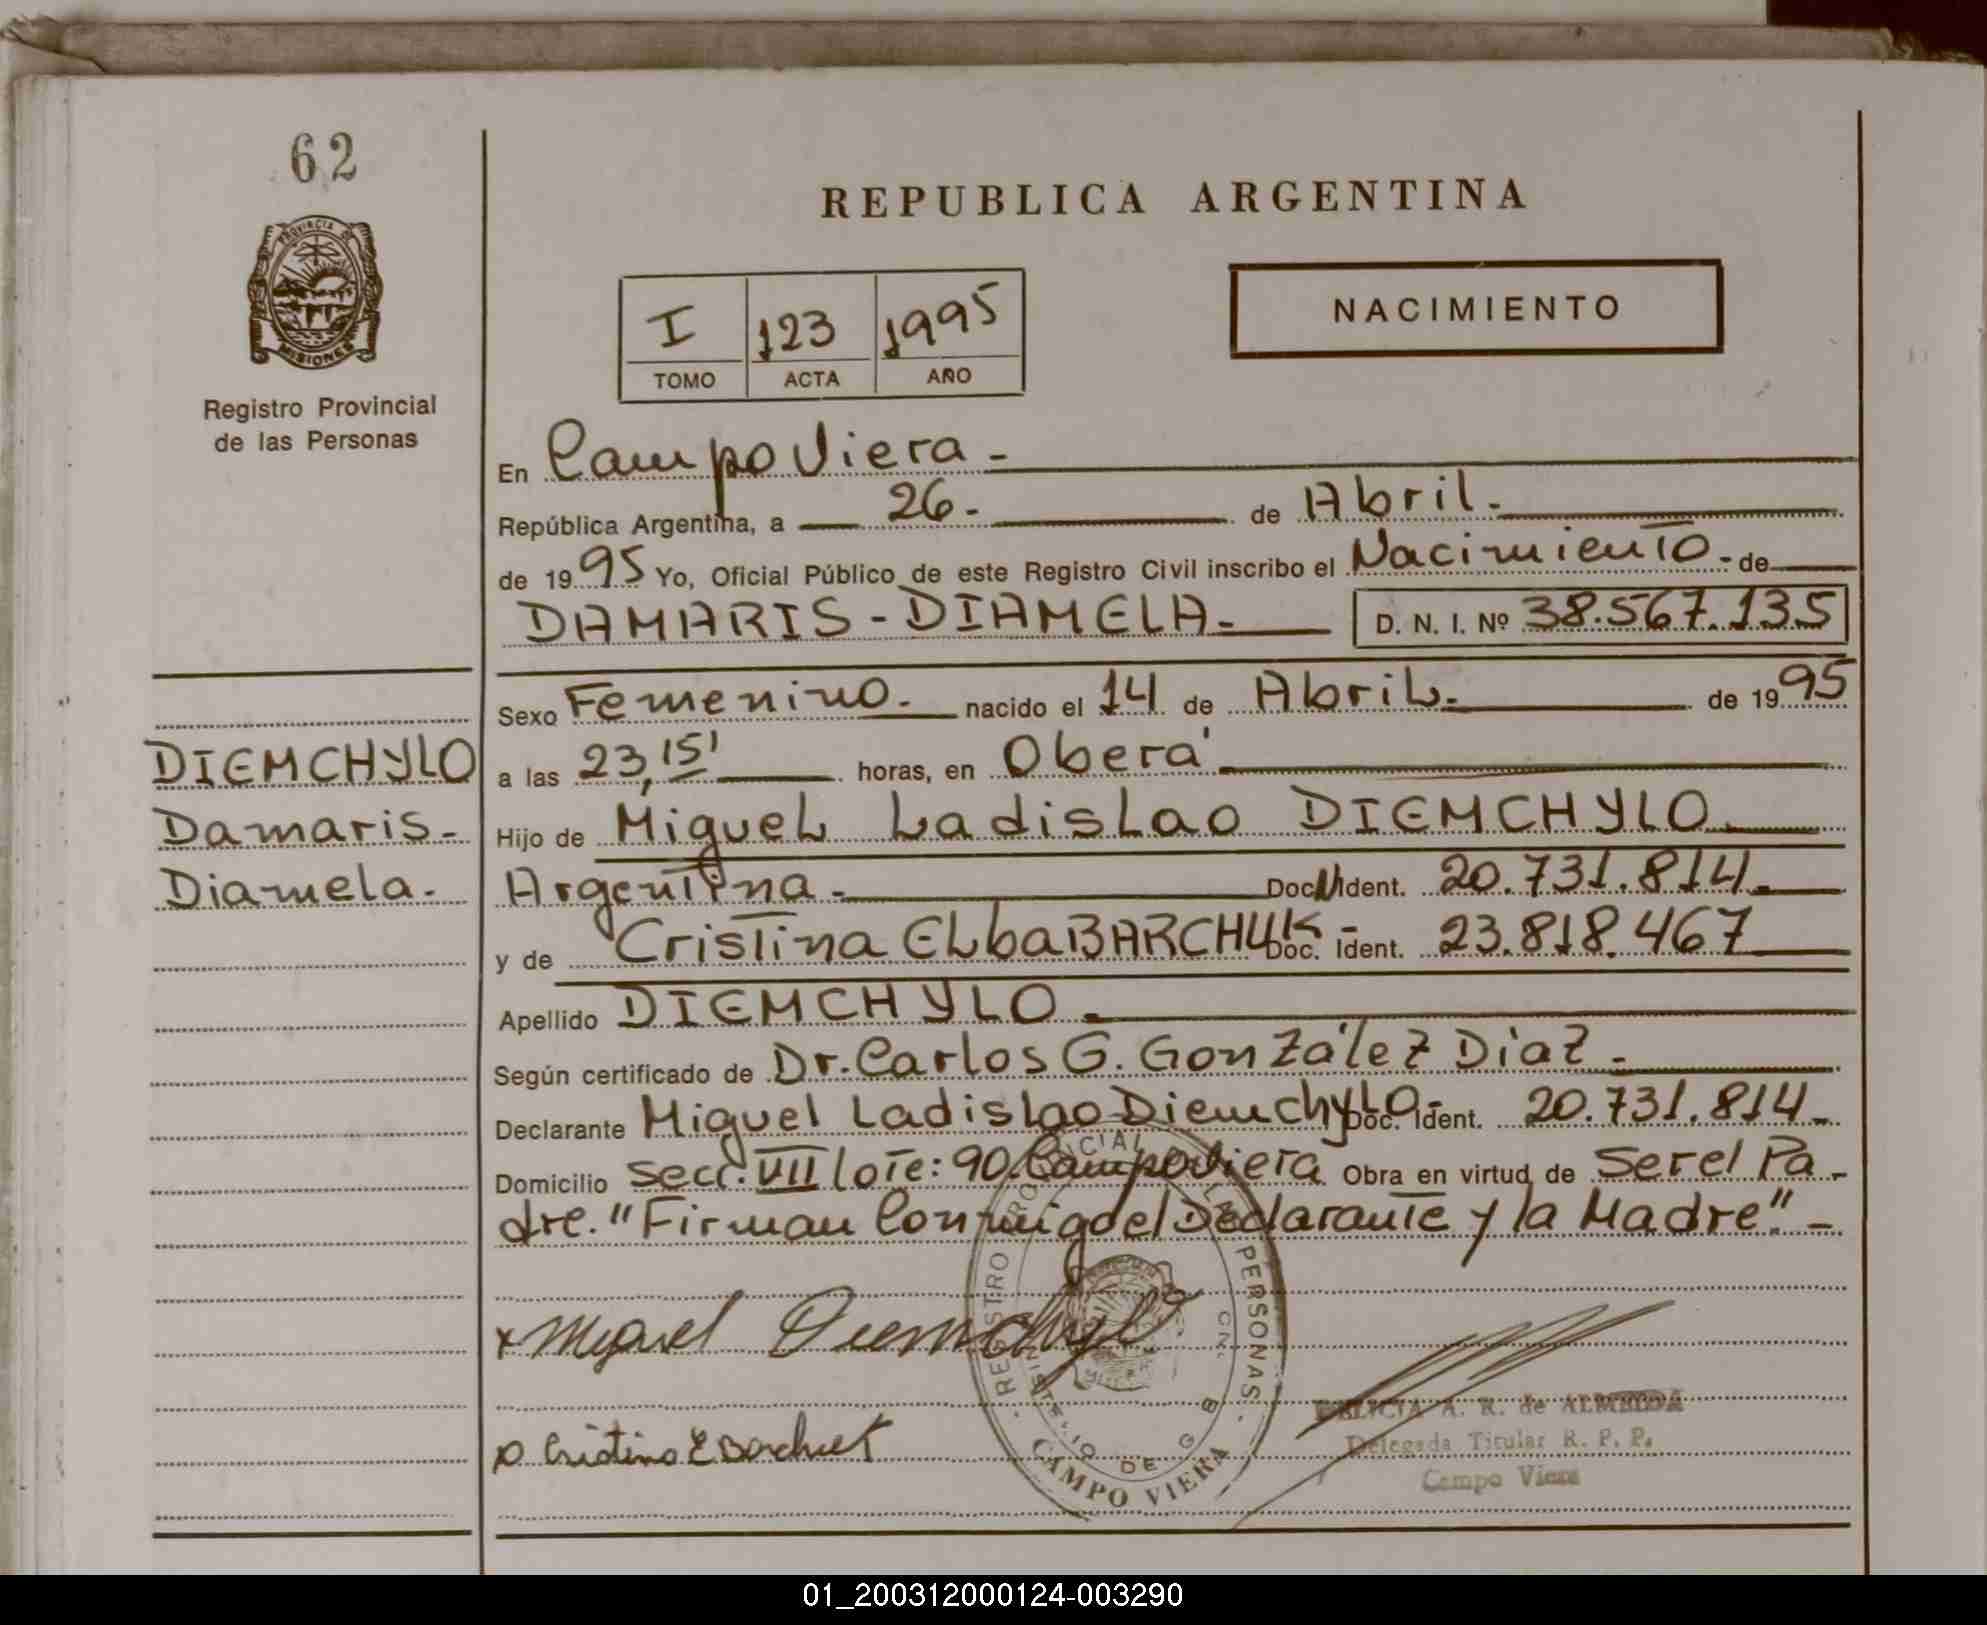 62
PROVINCIA DE
MISIONES
Registro Provincial
de las Personas
REPUBLICA ARGENTINA
I 123 1995
TOMO ACTA AÑO
NACIMIENTO
En Campo Viera -
República Argentina, a 26. de Abril.
de 1995 Yo, Oficial Público de este Registro Civil inscribo el Nacimiento. de
DAMARIS - DIAMELA. D. N. I. Nº 38.567.135
Sexo Femenino. nacido el 14 de Abril. de 1995
DIEMCHYLO
Damaris.
Diamela.
a las 23,15' horas, en Oberá
Hijo de Miguel Ladislao DIEMCHYLO.
Argentina. Doc. N Ident. 20.731.814.
y de Cristina ELba BARCHUK - Doc. Ident. 23.818.467
Apellido DIEMCHYLO.
Según certificado de Dr. Carlos G. González Díaz.
Declarante Miguel Ladislao Diemchylo - Doc. Ident. 20.731.814.
Domicilio Secc. VII lote: 90. Campo Viera Obra en virtud de Ser el Pa-
dre. "Firman Conmigo el Declarante y la Madre". -
x Miguel Diemchylo
Cristina E Barchuk
REGISTRO PROVINCIAL DE LAS PERSONAS
MINISTERIO DE GOB
CAMPO VIERA
FELICIA A. R. de ALMEIDA
Delegada Titular R. P. P.
Campo Viera
01_200312000124-003290